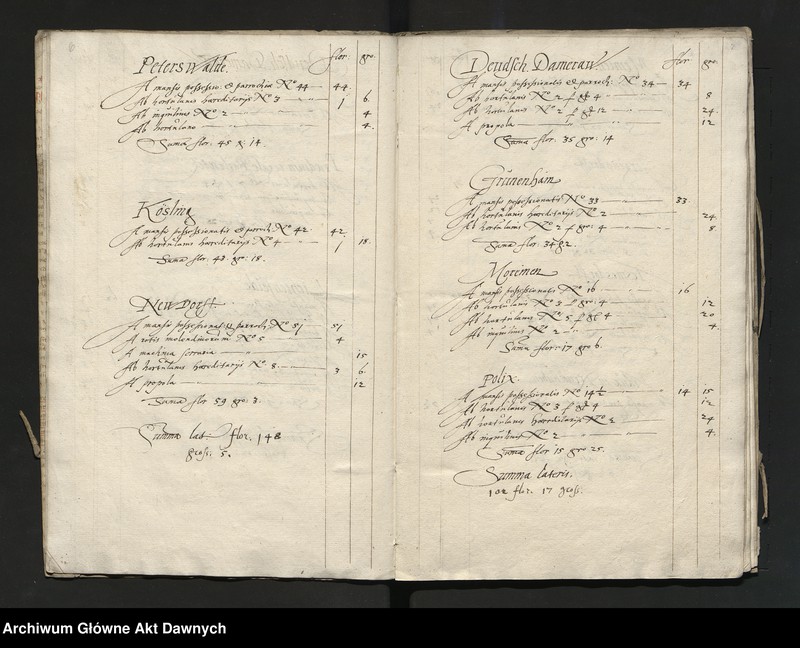 flor. gro.
Peters Walde.
A mansis possess: et parrochia No 44 44
Ab hortulanis haereditarijs No 3 1 6
Ab inquilinis No 2 4
Ab hortulano 4.
Suma flor: 45 g: 14.
A mansis possessionatis et parroch: No 42 42
Ab hortulanis haereditarijs No 4 1 18
Suma flor: 43 gro: 18.
New Dorff.
A mansis possessionat: et parroch: No 51 51
A rotis molendinorum No 5 4
A machina serraria 15
Ab hortulanis haereditarijs No 8 3 6
A propola 12
Suma flor 59 gro: 3.
Summa lat: flor. 148
gross: 5.
flor gro.
Deudsch Dameraw
A mansis possessionatis et parroch: No 34 34
Ab hortulanis No 2 p gr 4 8
Ab hortulanis No 2 p gr 12 24
A propola 12
Suma flor: 35 gro: 14
Grünenham
A mansis possessionatis No 33 33
Ab hortulanis haereditarijs No 2 24
Ab hortulanis No 2 p gro: 4 8
Suma flor: 34 g 2.
Morinen
A mansis possessionatis No 16 16
Ab hortulanis No 3 p gro: 4 12
Ab hortulanis No 5 p gr 4 20
Ab inquilinis No 2 4
Suma flor: 17 gro 6.
Polix.
A mansis possessionatis No 14½ 14 15
Ab hortulanis No 3 p gr 4 12
Ab hortulanis haereditarijs No 2 24
Ab inquilinis No 2 4
Suma flor 15 gro 25.
Summa lateris.
102 flor. 17 gross.
Archiwum Główne Akt Dawnych